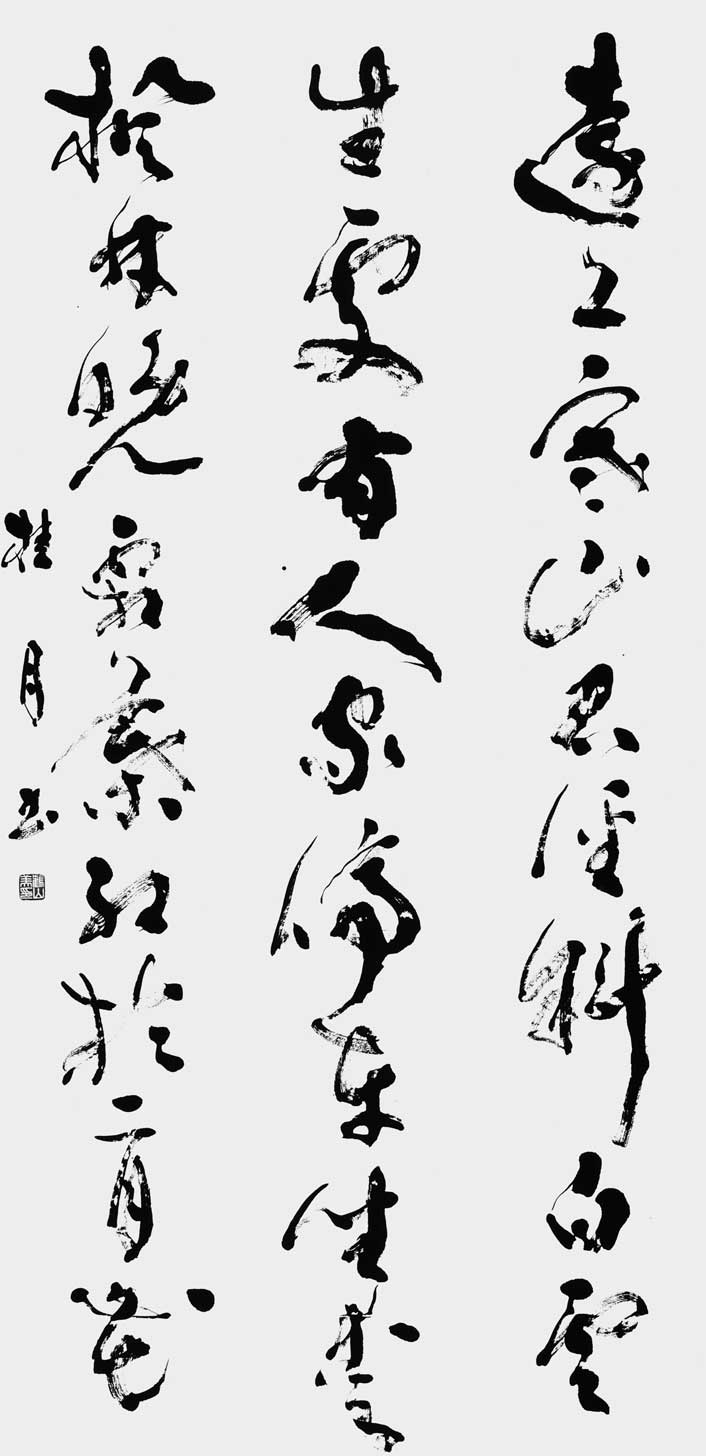 遠上寒山石徑斜白雲
生處有人家停車坐愛
楓林晚霜葉紅於二月花
桂月书